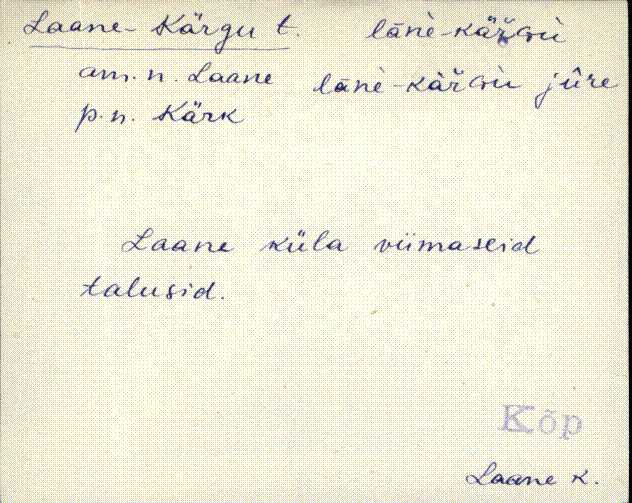 Laane-Kärgu t. lāne-kär̆Gu
am. n. Laane lāne-kär̆Gu jûre
p. n. Kärk
Laane küla viimaseid
talusid.
Kõp
Laane k.